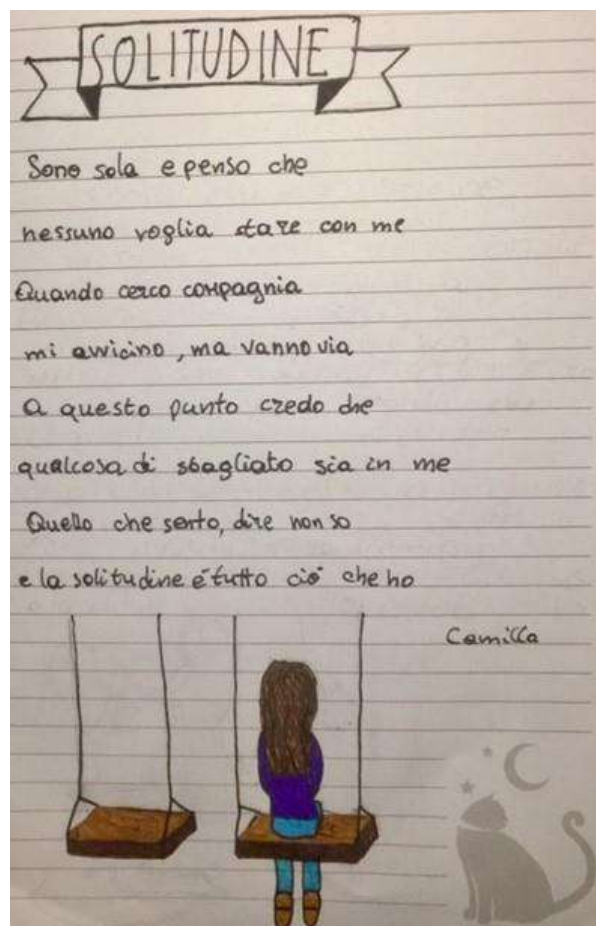 SOLITUDINE
Sono sola e penso che
nessuno voglia stare con me
Quando cerco compagnia
mi avvicino, ma vanno via
a questo punto credo che
qualcosa di sbagliato sia in me
Quello che sento, dire non so
e la solitudine é tutto ció che ho
Camilla